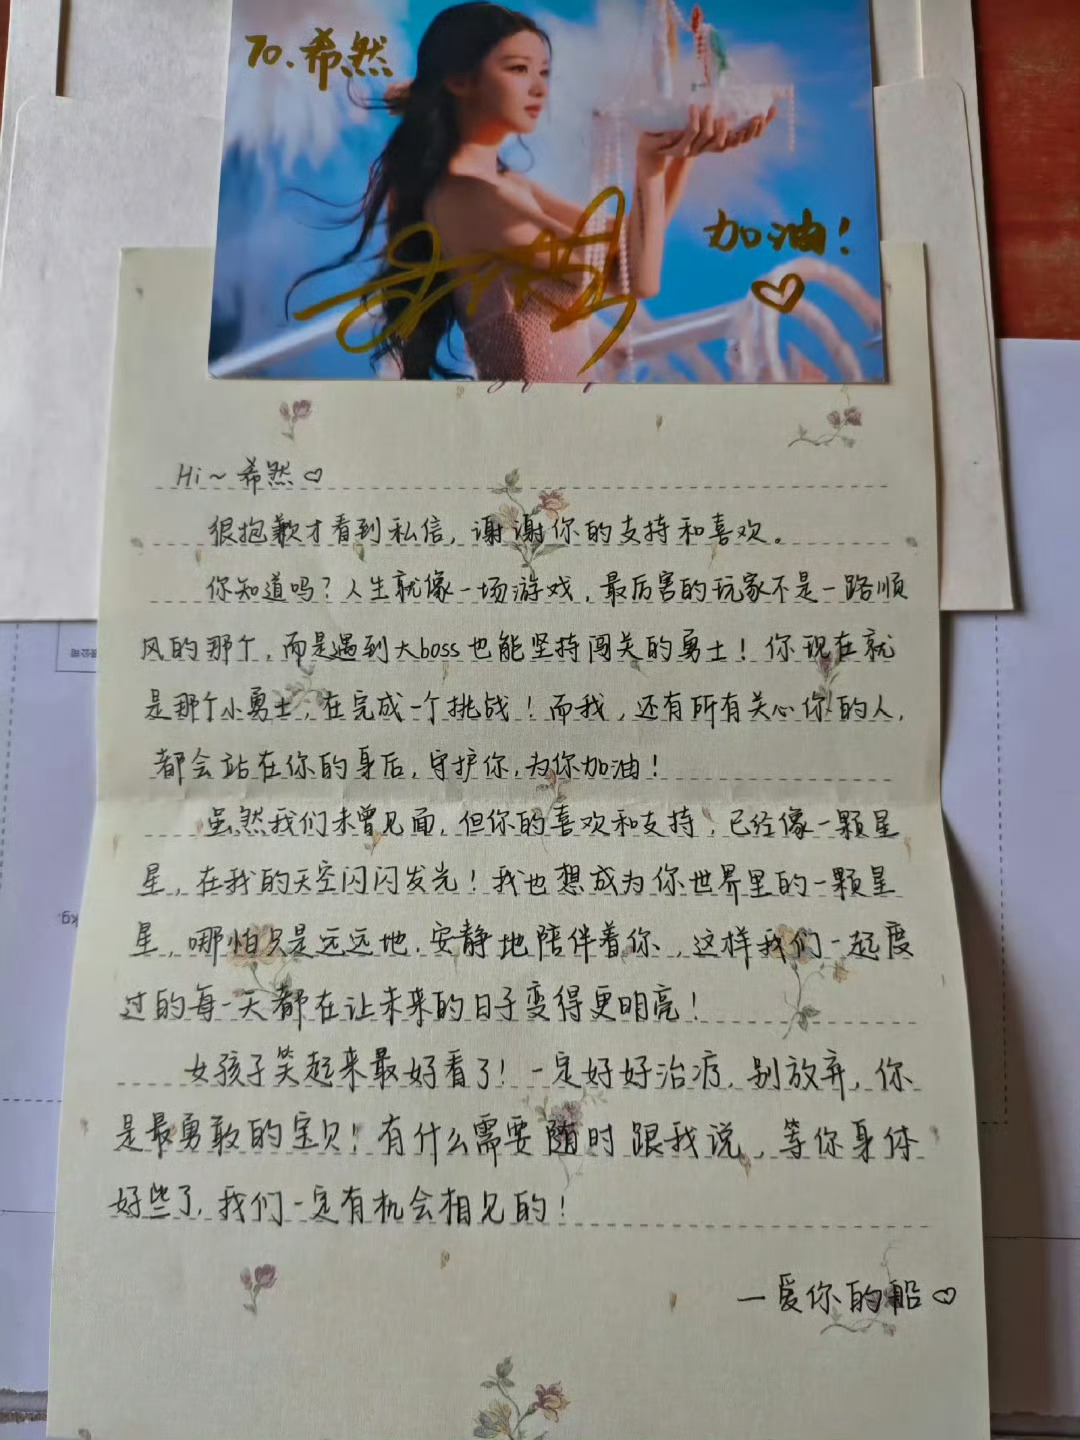 To.希然
加油!
Hi~希然♡
很抱歉才看到私信,谢谢你的支持和喜欢。
你知道吗?人生就像一场游戏,最厉害的玩家不是一路顺
风的那个,而是遇到大boss也能坚持闯关的勇士!你现在就
是那个小勇士,在完成一个挑战!而我,还有所有关心你的人,
都会站在你的身后,守护你,为你加油!
虽然我们未曾见面,但你的喜欢和支持,已经像一颗星
星,在我的天空闪闪发光!我也想成为你世界里的一颗星
星,哪怕只是远远地,安静地陪伴着你,这样我们一起度
过的每一天都在让未来的日子变得更明亮!
女孩子笑起来最好看了!一定好好治疗,别放弃,你
是最勇敢的宝贝!有什么需要随时跟我说,等你身体
好些了,我们一定有机会相见的!
—爱你的船♡
kg.